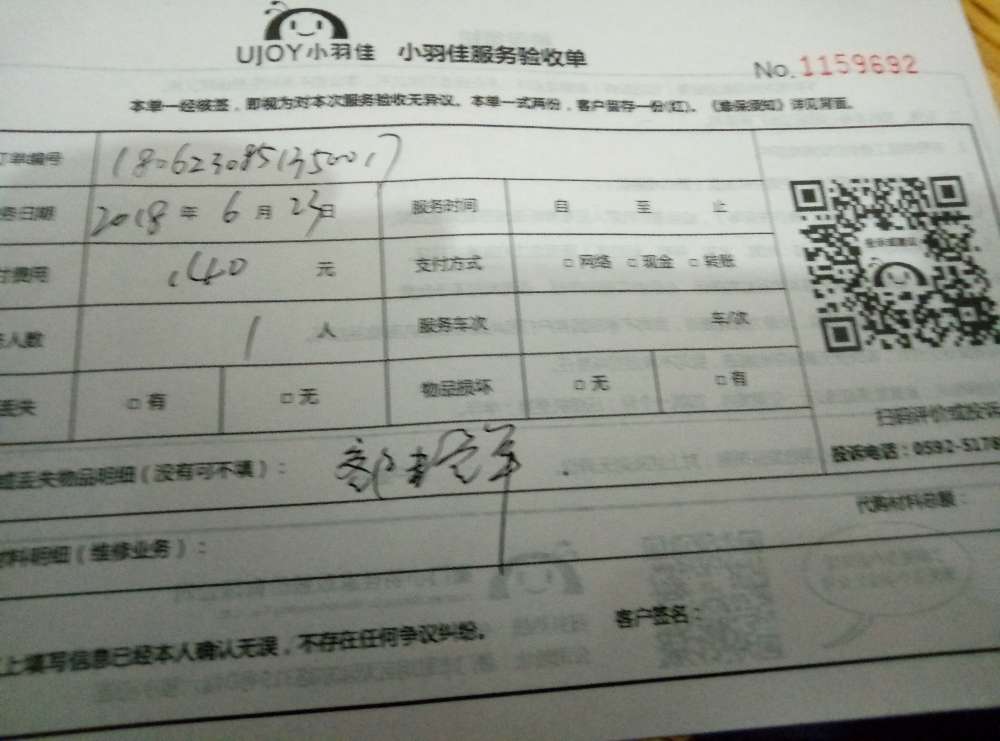 UJOY小羽佳 小羽佳服务验收单
No. 1159692
本单一经核签，即视为对本次服务验收无异议。本单一式两份，客户留存一份(红)。《维保须知》详见背面。
单编号 1806230851350017
务日期 2018 年 6 月 23 日 服务时间 自 至 止
付费用 140 元 支付方式 □ 网络 □ 现金 □ 转账
人数 1 人 服务车次 车/次
丢失 □ 有 □ 无 物品损坏 □ 无 □ 有
扫码评价或投诉
投诉电话：0592-5178
或丢失物品明细（没有可不填）：
代购材料总额：
材料明细（维修业务）：
客户签名：
上填写信息已经本人确认无误，不存在任何争议纠纷。